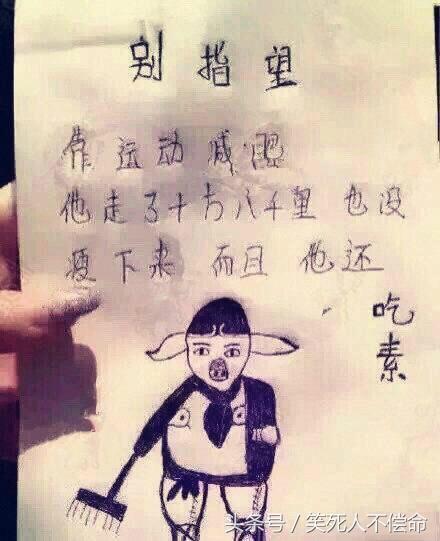 别指望
靠运动减肥
他走了十万八千里也没
瘦下来 而且 他还
吃素
头条号/笑死人不偿命